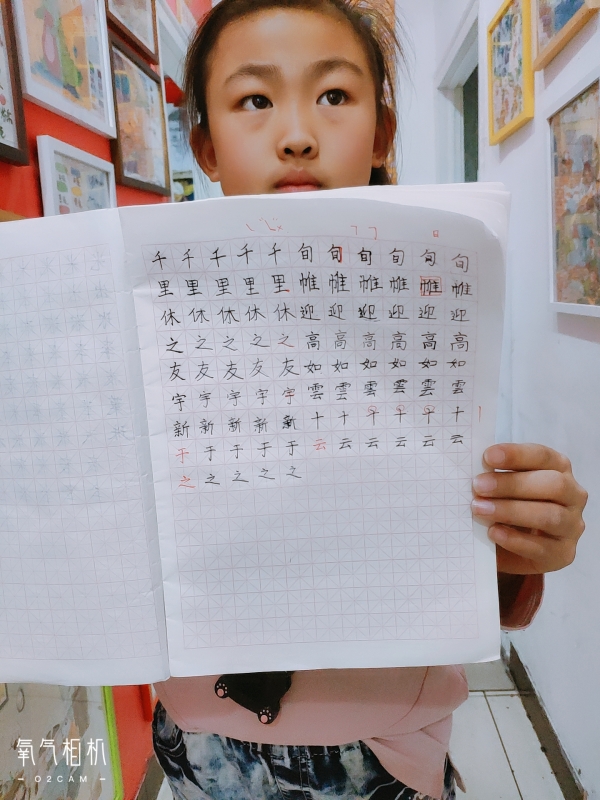 千千千千千旬旬旬旬旬旬
里里里里里帷帷帷帷帷帷
休休休休休迎迎迎迎迎迎
之之之之之高高高高高高
友友友友友如如如如如如
宇宇宇宇宇雲雲雲雲雲雲
新新新新新十十千千千十
于于于于于云云云云云云
之之之之之
氧气相机
O2CAM